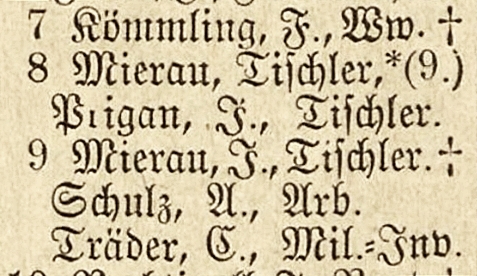 7 Kömmling, F., Ww. †
8 Mierau, Tischler,*(9.)
J., Tischler.
9 Mierau, J., Tischler. †
Schulz, A., Arb.
Träder, C., Mil.-Inv.